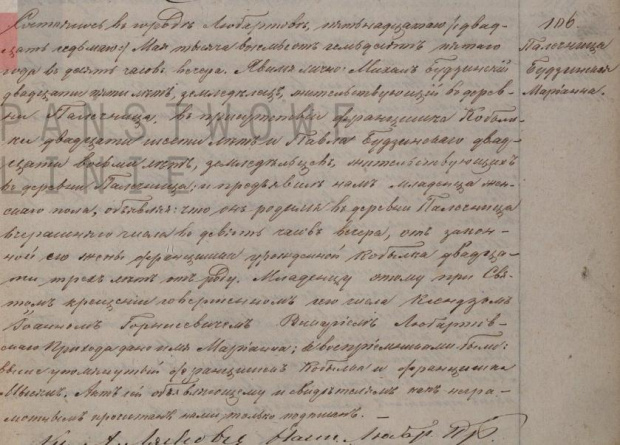 Состоялось въ городѣ Любартовѣ, пятьнадцатаго /двад-
цать седьмаго/ Мая тысяча восемьсотъ семьдесятъ пятаго
года въ десять часовъ вечера. Явился лично Михалъ Будзинскій
двадцати пяти лѣтъ, земледѣлецъ, жительствующій въ дерев-
ни Палечница, въ присутствіи Францишка Кобыл-
ки двадцати шести лѣтъ и Павла Будзинскаго двад-
цати восьми лѣтъ, земледѣльцевъ, жительствующихъ
въ деревни Палечница; и предъявилъ намъ младенца жен-
скаго пола, объявляя: что онъ родился въ деревни Палечница
вчерашняго числа въ девять часовъ вечера, отъ закон-
ной его жены Францишки урожденной Кобылка двадца-
ти трехъ лѣтъ отъ роду. Младенцу этому при Свя-
томъ крещеніи совершенномъ сего числа Ксендзомъ
Іоанномъ Викаріемъ Любартов-
скаго Прихода дано имя Маріанна; а воспріемниками были:
вышеупомянутый Францишекъ Кобылка и Францишка
Актъ сей объявляющему и свидѣтелямъ какъ негра-
мотнымъ прочитанъ нами только подписанъ.
106
Палечница
Будзинская
Маріанна.
PAŃSTWOWE
LINIE